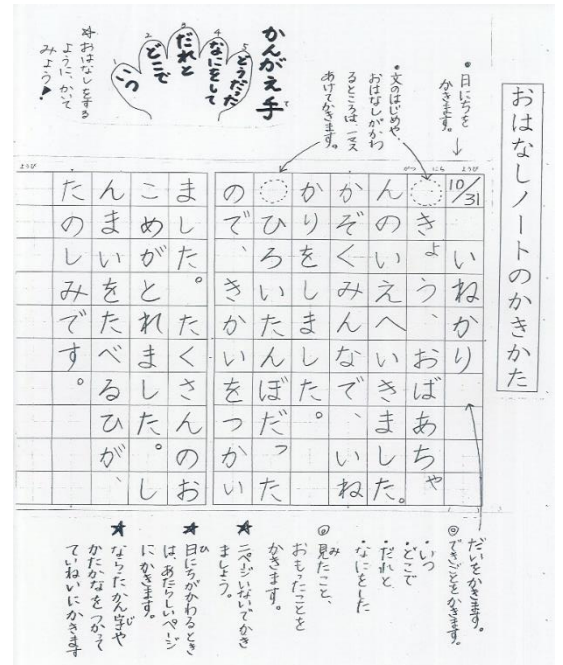 おはなしノートのかきかた
・日にちを
かきます。
・文のはじめや、
おはなしがかわ
るところは、一マス
あけてかきます。
かんがえ手
て
5 どうだった
4 なにをして
3 だれと
2 どこで
1 いつ
☆おはなしをする
ように、かいて
みよう!
がつ にち ようび
10/31 いねかり
きょう、おばあちゃ
んのいえへいきました。
かぞくみんなで、いね
かりをしました。
ひろいたんぼだった
ので、きかいをつかい
ました。たくさんのお
こめがとれました。し
んまいをたべるひが、
たのしみです。
ようび
だいをかきます。
◎できごとをかきます。
・いつ
・どこで
・だれと
・なにをした
◎見たこと、
み
おもったことを
かきます。
★二ページいないでかき
ましょう。
★日にちがかわるとき
ひ
は、あたらしいページ
にかきます。
★ならったかん字や
じ
かたかなをつかって
ていねいにかきます